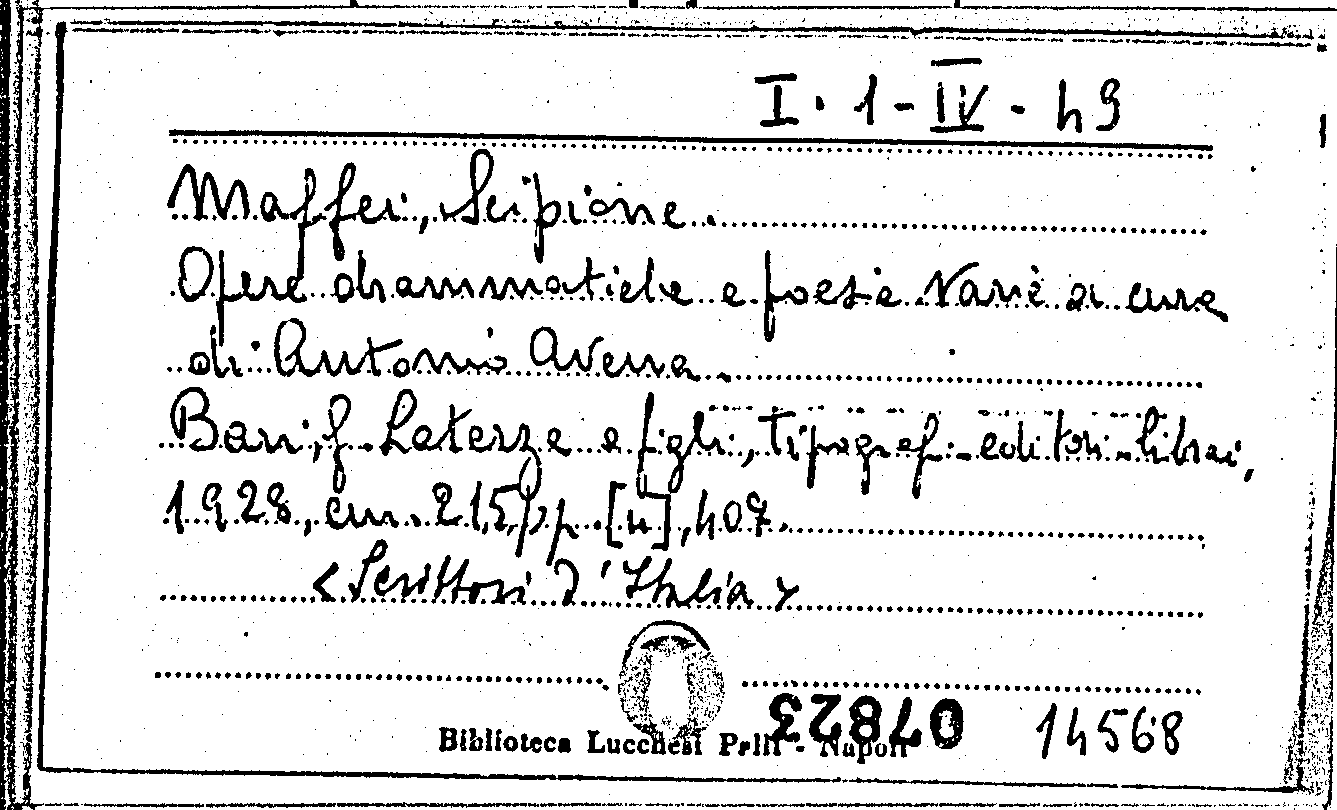 I. 1 - IV - 49
Maffei, Scipione.
Opere drammatiche e poesie varie a cura
di Antonio Avena.
Bari, G. Laterza e figli, tipograf.-editori-librai,
1928, cm. 21,5, pp. [4], 407.
<Scrittori d'Italia>
07823 14568
Biblioteca Lucchesi Palli - Napoli